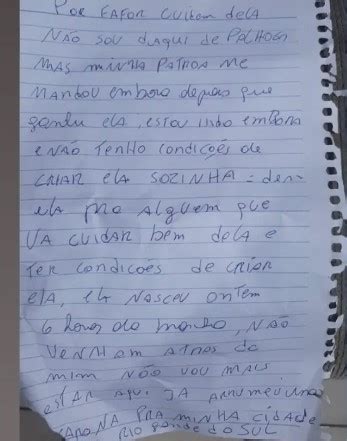 POR FAFOR CUidem dela
NÃO SOU DAQUI de PALHOÇA
MAS MINHA PATROA Me
MANdOU embora depois que
ganhei ela, estou indo embora
e NÃO TeNHO CONDIÇÕES de
CRIAR ela SOZINHA = deem
ela PRO Alguem que
VA CUIDAR bem dela e
TER condicões de CRIAR
ela, ela NASCEU ONTEM
6 horas da manha, NÃO
VENHAM ATRAS de
mim NÃO VOU MAIS
estAR AQUI JA ARRUMEI UMA
CARONA PRA MINHA CIDADE
RIO gRANde do SUL